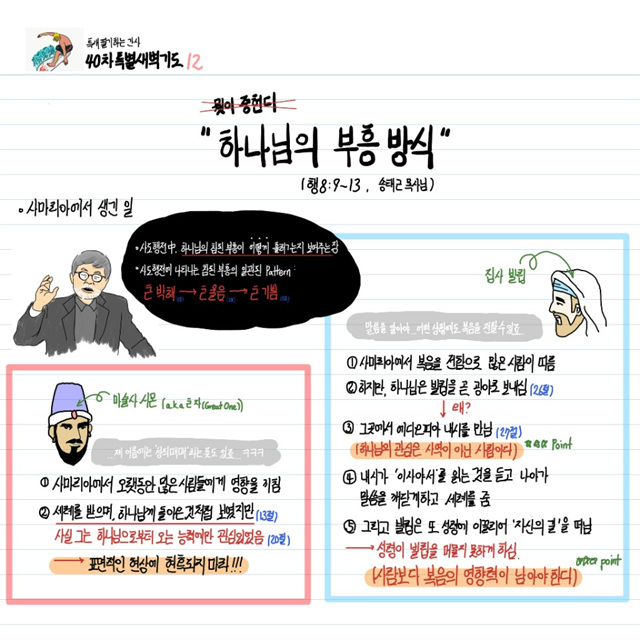 특새 필기하는 간사
40차 특별새벽기도 12
뭣이 중헌디
"하나님의 부흥 방식"
(행8:9~13, 송태근 목사님)
• 사마리아에서 생긴 일
• 사도행전中, 하나님의 침된 부흥이 어떻게 흘러가는지 보여주는 장
• 사도행전에 나타나는 참된 부흥의 일관된 Pattern:
큰 박해 → 큰 울음 → 큰 기쁨
마술사 시몬 (a.k.a 큰 자(Great One))
ㅋㅋㅋ
① 사마리아에서 오랫동안 많은 사람들에게 영향을 끼침
② 세례를 받으며, 하나님께 돌아온 것처럼 보였지만 (13절)
사실 그는 하나님으로부터 오는 능력에만 관심있었음 (20절)
→ 표면적인 현상에 현혹되지 마라!!!
집사 빌립
말씀을 살아야.. 어떤 상황에도 복음을 전할 수 있죠..
① 사마리아에서 복음을 전함으로 많은 사람이 따름
② 하지만, 하나님은 빌립을 곧 광야로 보내심 (26절)
↓ 왜?
③ 그곳에서 에디오피아 내시를 만남 (27절)
(하나님의 관심은 사역이 아닌 사람이다) ☆☆☆ Point
④ 내시가 '이사야서'를 읽는 것을 듣고 나아가
말씀을 깨닫게하고 세례를 줌
⑤ 그리고 빌립은 또 성령에 이끌리어 '자신의 길'을 떠남
→ 성령이 빌립을 머물지 못하게 하심.
(사람보다 복음의 영향력이 남아야 한다) ☆☆☆ point